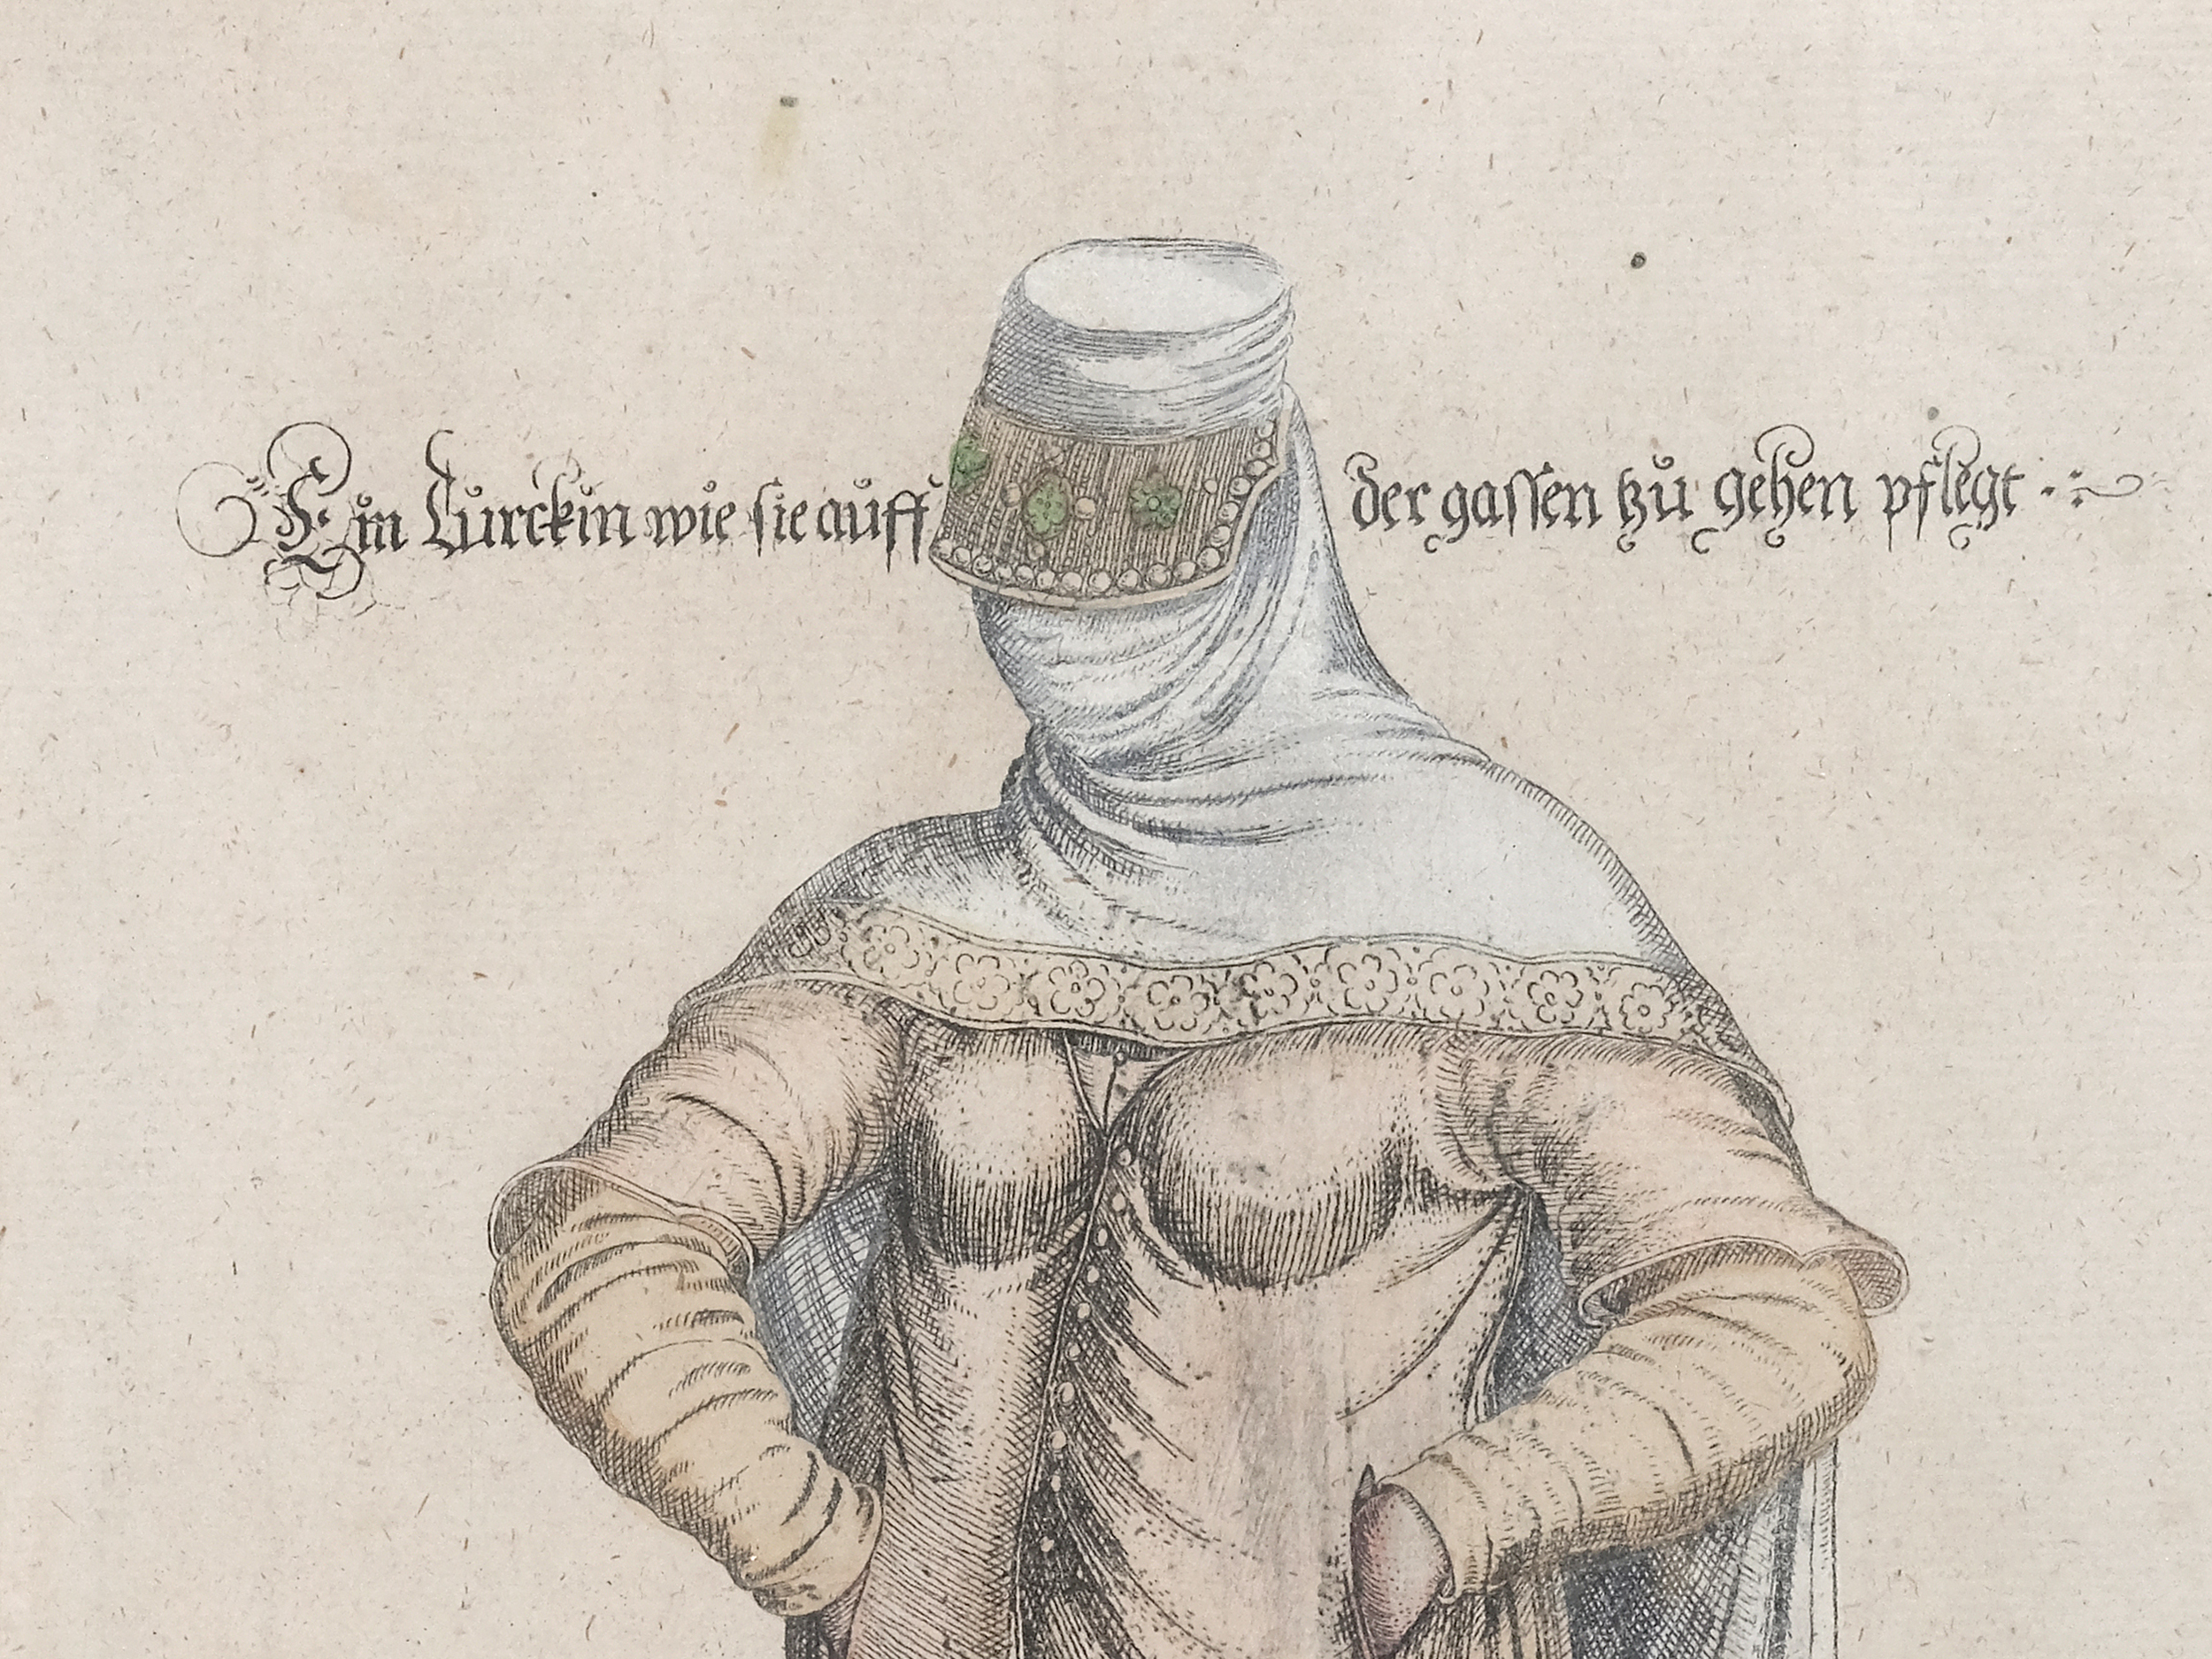 Ein Turckin wie sie auff der gassen tzu gehen pflegt